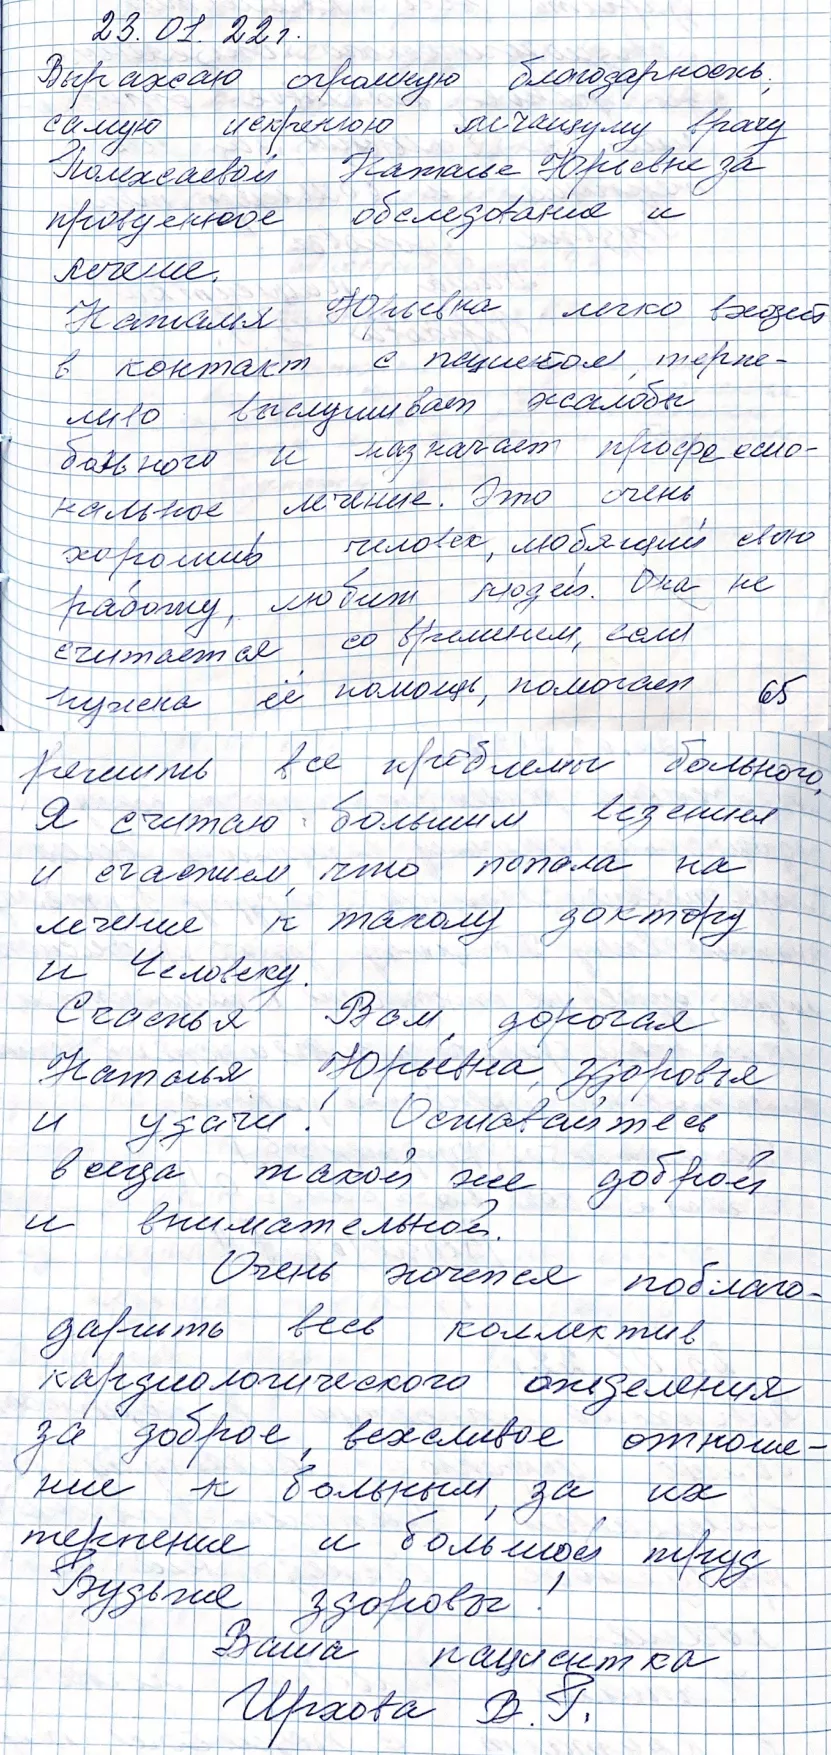 23.01.22г.
Выражаю огромную благодарность,
самую искреннюю лечащему врачу
Наталье Юрьевне за
проведенное обследование и
лечение.
Наталья Юрьевна легко входит
в контакт с пациентом, терпе-
ливо выслушивает жалобы
больного и назначает професио-
нальное лечение. Это очень
хороший человек, любящий свою
работу, любит людей. Она не
считается со временем, если
нужна её помощь, помогает
65
решить все проблемы больного.
Я считаю большим везением
и счастием, что попала на
лечение к такому доктору
и Человеку.
Счастья Вам, дорогая
Наталья Юрьевна, здоровья
и удачи! Оставайтесь
всегда такой же доброй
и внимательной.
Очень хочется поблаго-
дарить весь коллектив
кардиологического отделения
за доброе, вежливое отноше-
ние к больным, за их
терпение и большой труд
Будьте здоровы!
Ваша пациентка
В. Г.